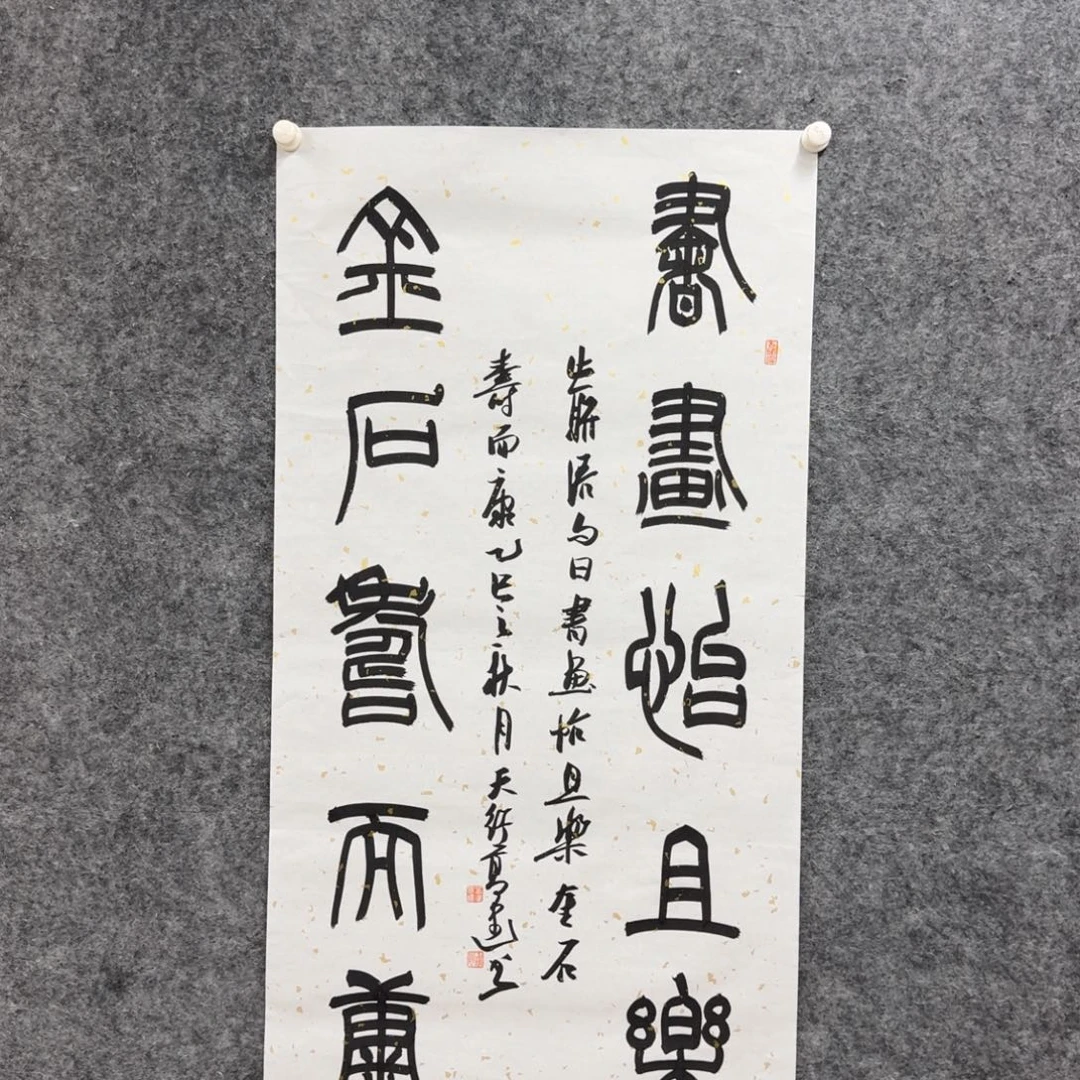 書畫怡且樂
此聯語為曰書畫怡且樂金石
壽而康乙巳之秋月天行葛建書
金石壽而康